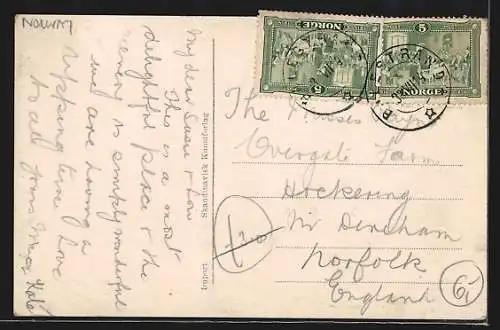 NORWAY
My dear Susie & Lou
This is a most
delightful place & the
scenery is simply wonderful
we are having a
ripping time love
to all yours
Skandinavisk Kunstforlag
Import
5
NORGE
5
NORGE
BALESTRAND
The Misses
Overgate Farm
Hockering
Nr Dereham
Norfolk
England